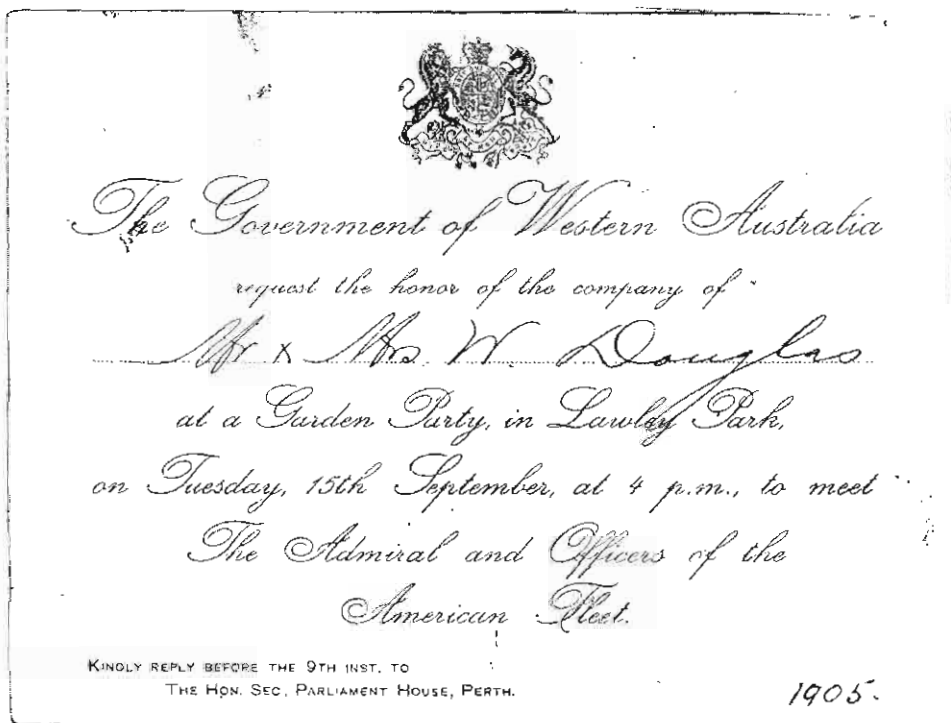 The Government of Western Australia
request the honor of the company of
Mr & Mrs. W. Douglas
at a Garden Party, in Lawley Park,
on Tuesday, 15th September, at 4 p.m., to meet
The Admiral and Officers of the
American Fleet.
KINDLY REPLY BEFORE THE 9TH INST. TO
THE HON. SEC, PARLIAMENT HOUSE, PERTH.
1905.